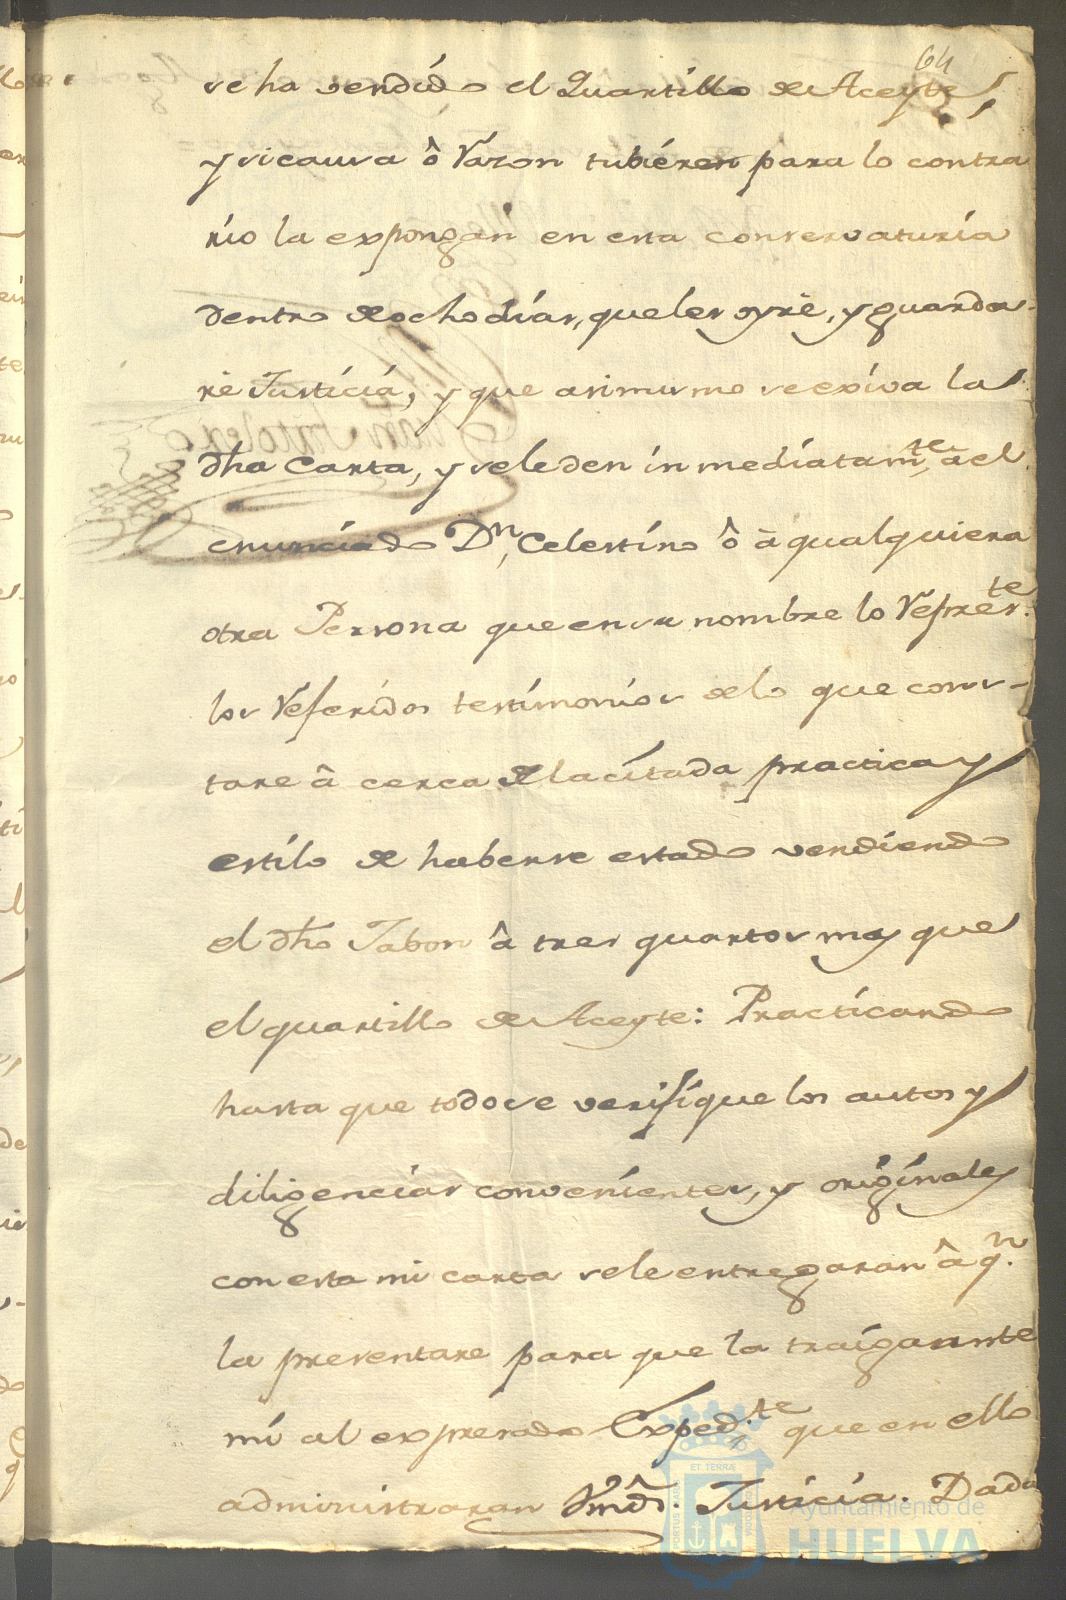 64
se ha vendido el Quartillo de Aceyte,
y si causa ô Razon tubiéren para lo contra
rio la expongan en esta conservaturia
dentro de ocho dias, que les oyré, y guarda-
ré Justicia, y que asimismo se exiva la
dha Carta, y se le den inmediatamte, a el
enunciado Dn, Celestino ô à qualquiera
otra Persona que en su nombre lo Represte.
los Referidos testimonios de lo que cons-
tare â cerca de la citada practica y
estilo de haberse estado vendiendo
el dho Jabon â tres quartos mas que
el quartillo de Aceyte: Practicando
hasta que todo se verifique los autos y
diligencias convenientes, y originales
con esta mi carta se le entregaran â qn.
la presentare para que la traiga ante
mi al expresado Expedte que en ello
administraran Vmds. Justicia. Dada
ET TERRAE
Ayuntamiento de
HUELVA